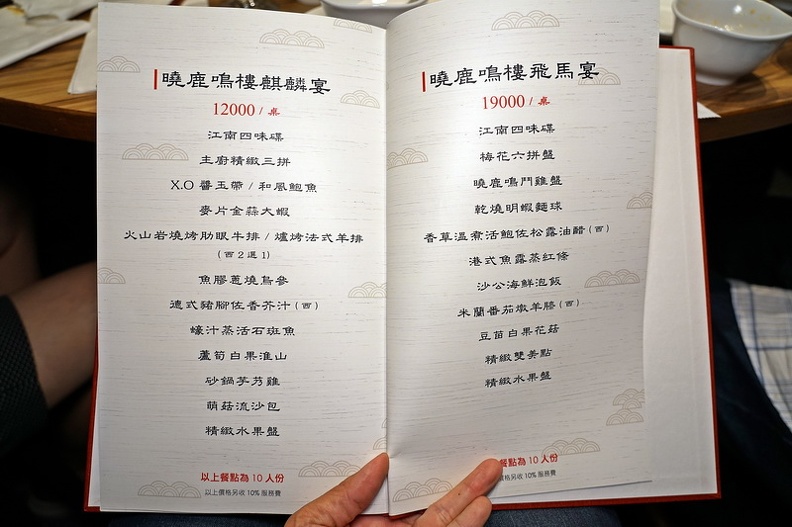 曉鹿鳴樓麒麟宴
12000 / 桌
江南四味碟
主廚精緻三拼
X.O 醬玉帶 / 和風鮑魚
麥片金蒜大蝦
火山岩燒烤肋眼牛排 / 爐烤法式羊排
(西2選1)
魚膠蔥燒烏參
德式豬腳佐香芥汁(西)
蠔汁蒸活石斑魚
蘆筍白果淮山
砂鍋芋艿雞
萌菇流沙包
精緻水果盤
以上餐點為 10 人份
以上價格另收 10% 服務費
曉鹿鳴樓飛馬宴
19000 / 桌
江南四味碟
梅花六拼盤
曉鹿鳴鬥雞盤
乾燒明蝦麵球
香草溫煮活鮑佐松露油醋(西)
港式魚露蒸紅條
沙公海鮮泡飯
米蘭番茄燉羊膝(西)
豆苗白果花菇
精緻雙美點
精緻水果盤
餐點為 10 人份
價格另收 10% 服務費